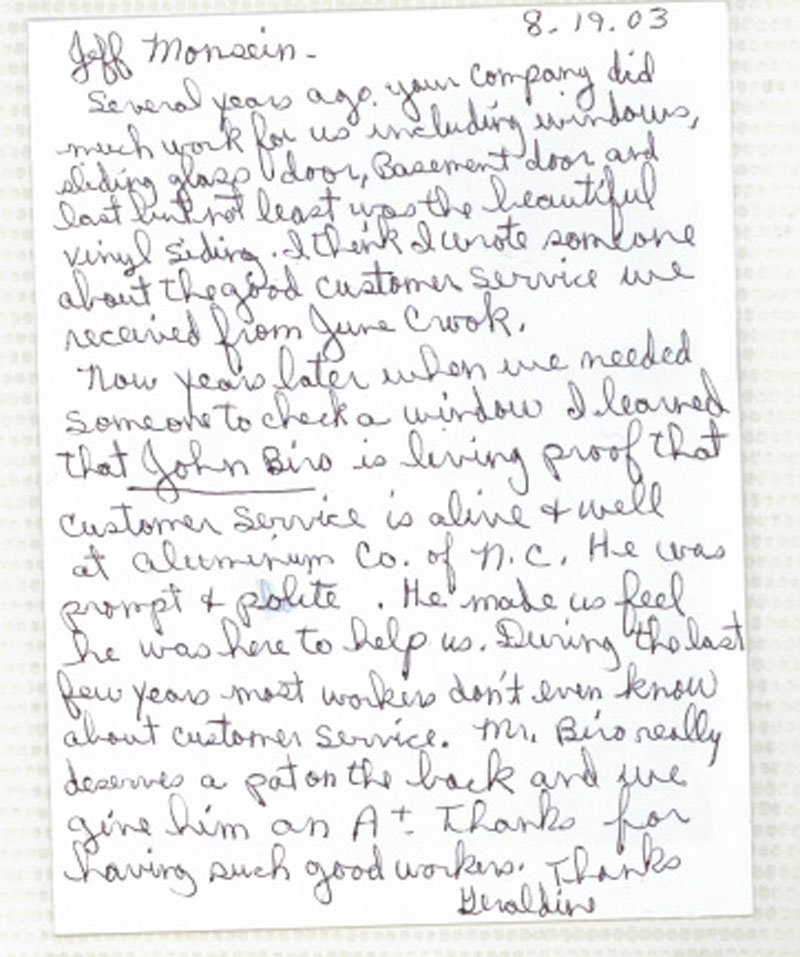 8.19.03
Jeff Monsein -
Several years ago. your company did
much work for us including windows,
sliding glass door, Basement door and
last but not least was the beautiful
vinyl siding. I think I wrote someone
about the good customer service we
received from June Crook.
Now years later when we needed
someone to check a window I learned
that John Biro is living proof that
customer service is alive & well
at Aluminum Co. of N.C. He was
prompt & polite . He made us feel
he was here to help us. During the last
few years most workers don't even know
about customer service. Mr. Biro really
deserves a pat on the back and we
give him an A+. Thanks for
having such good workers. Thanks
Geraldine